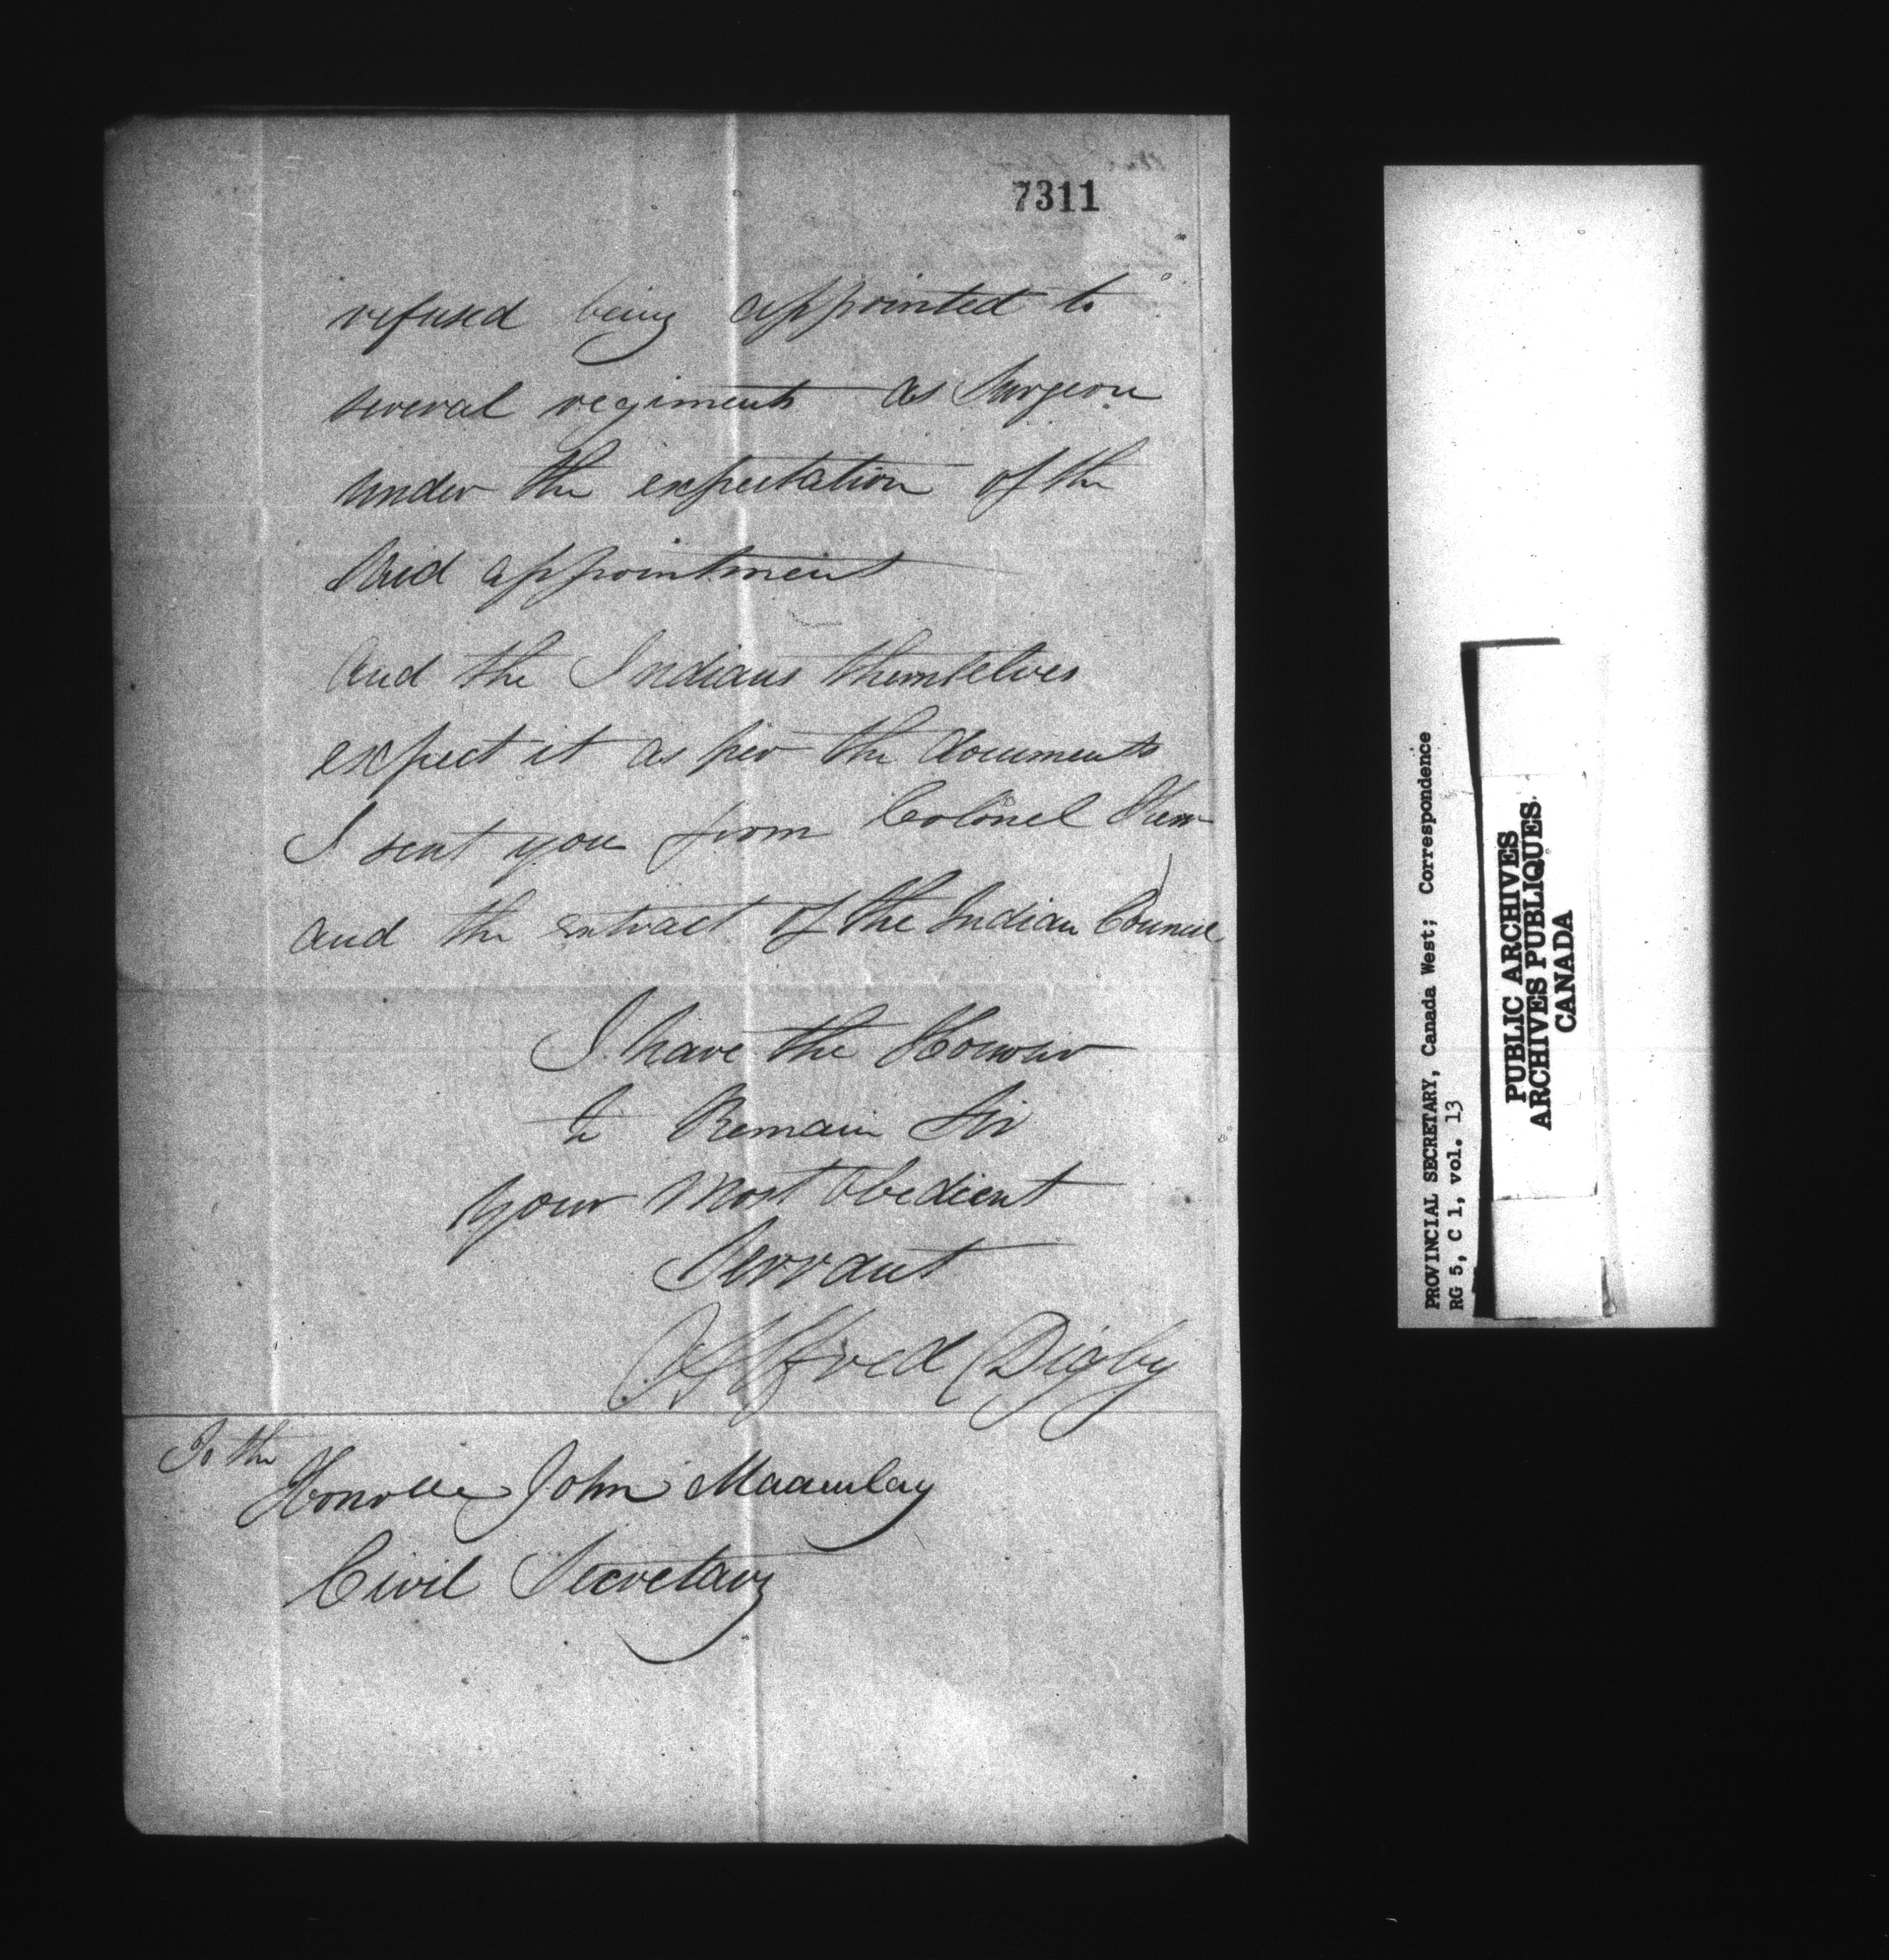 7311
refused being appointed to
several regiments as Surgeon
under the expectation of the
Said appointment
And the Indians themselves
expect it as per the documents
I sent you from Colonel
and the extract of the Indian Council
I have the Honour
to Remain Sir
your Most Obedient
Servant
Alfred Digby
To the
Honble John Macaulay
Civil Secretary
PROVINCIAL SECRETARY, Canada West; Correspondence
RG 5, C 1, vol. 13
PUBLIC ARCHIVES
ARCHIVES PUBLIQUES
CANADA